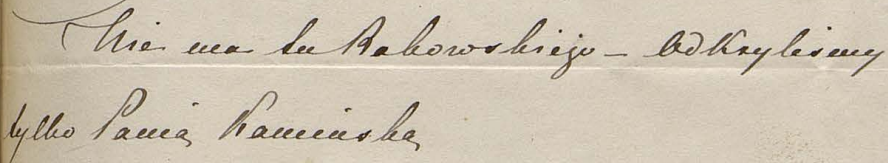 Nie ma tu Rakowskiego – Odkryliśmy
tylko Panią Kamińską